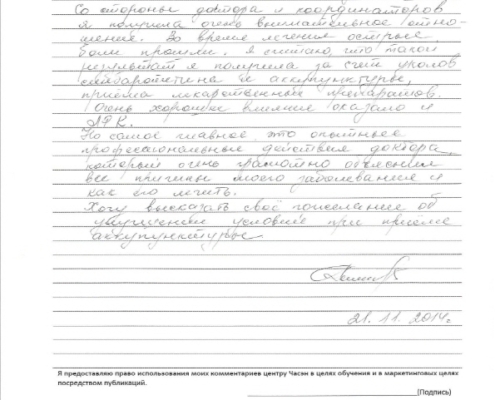 Со стороны доктора и координаторов
я получила очень внимательное отно-
шение. Во время лечения острые
боли прошли. Я считаю, что такой
результат я получила за счет уколов
и аккупунктуры,
приёма лекарственных препаратов.
Очень хорошее влияние оказало и
ЛФК.
Но самое главное это опытные
профессиональные действия доктора,
который очень грамотно объяснил
все причины моего заболевания и
как его лечить.
Хочу высказать своё пожелание об
улучшении условий при приёме
аккупунктуры
21.11.2014г.
Я предоставляю право использования моих комментариев центру Часэн в целях обучения и в маркетинговых целях
посредством публикаций.
(Подпись)